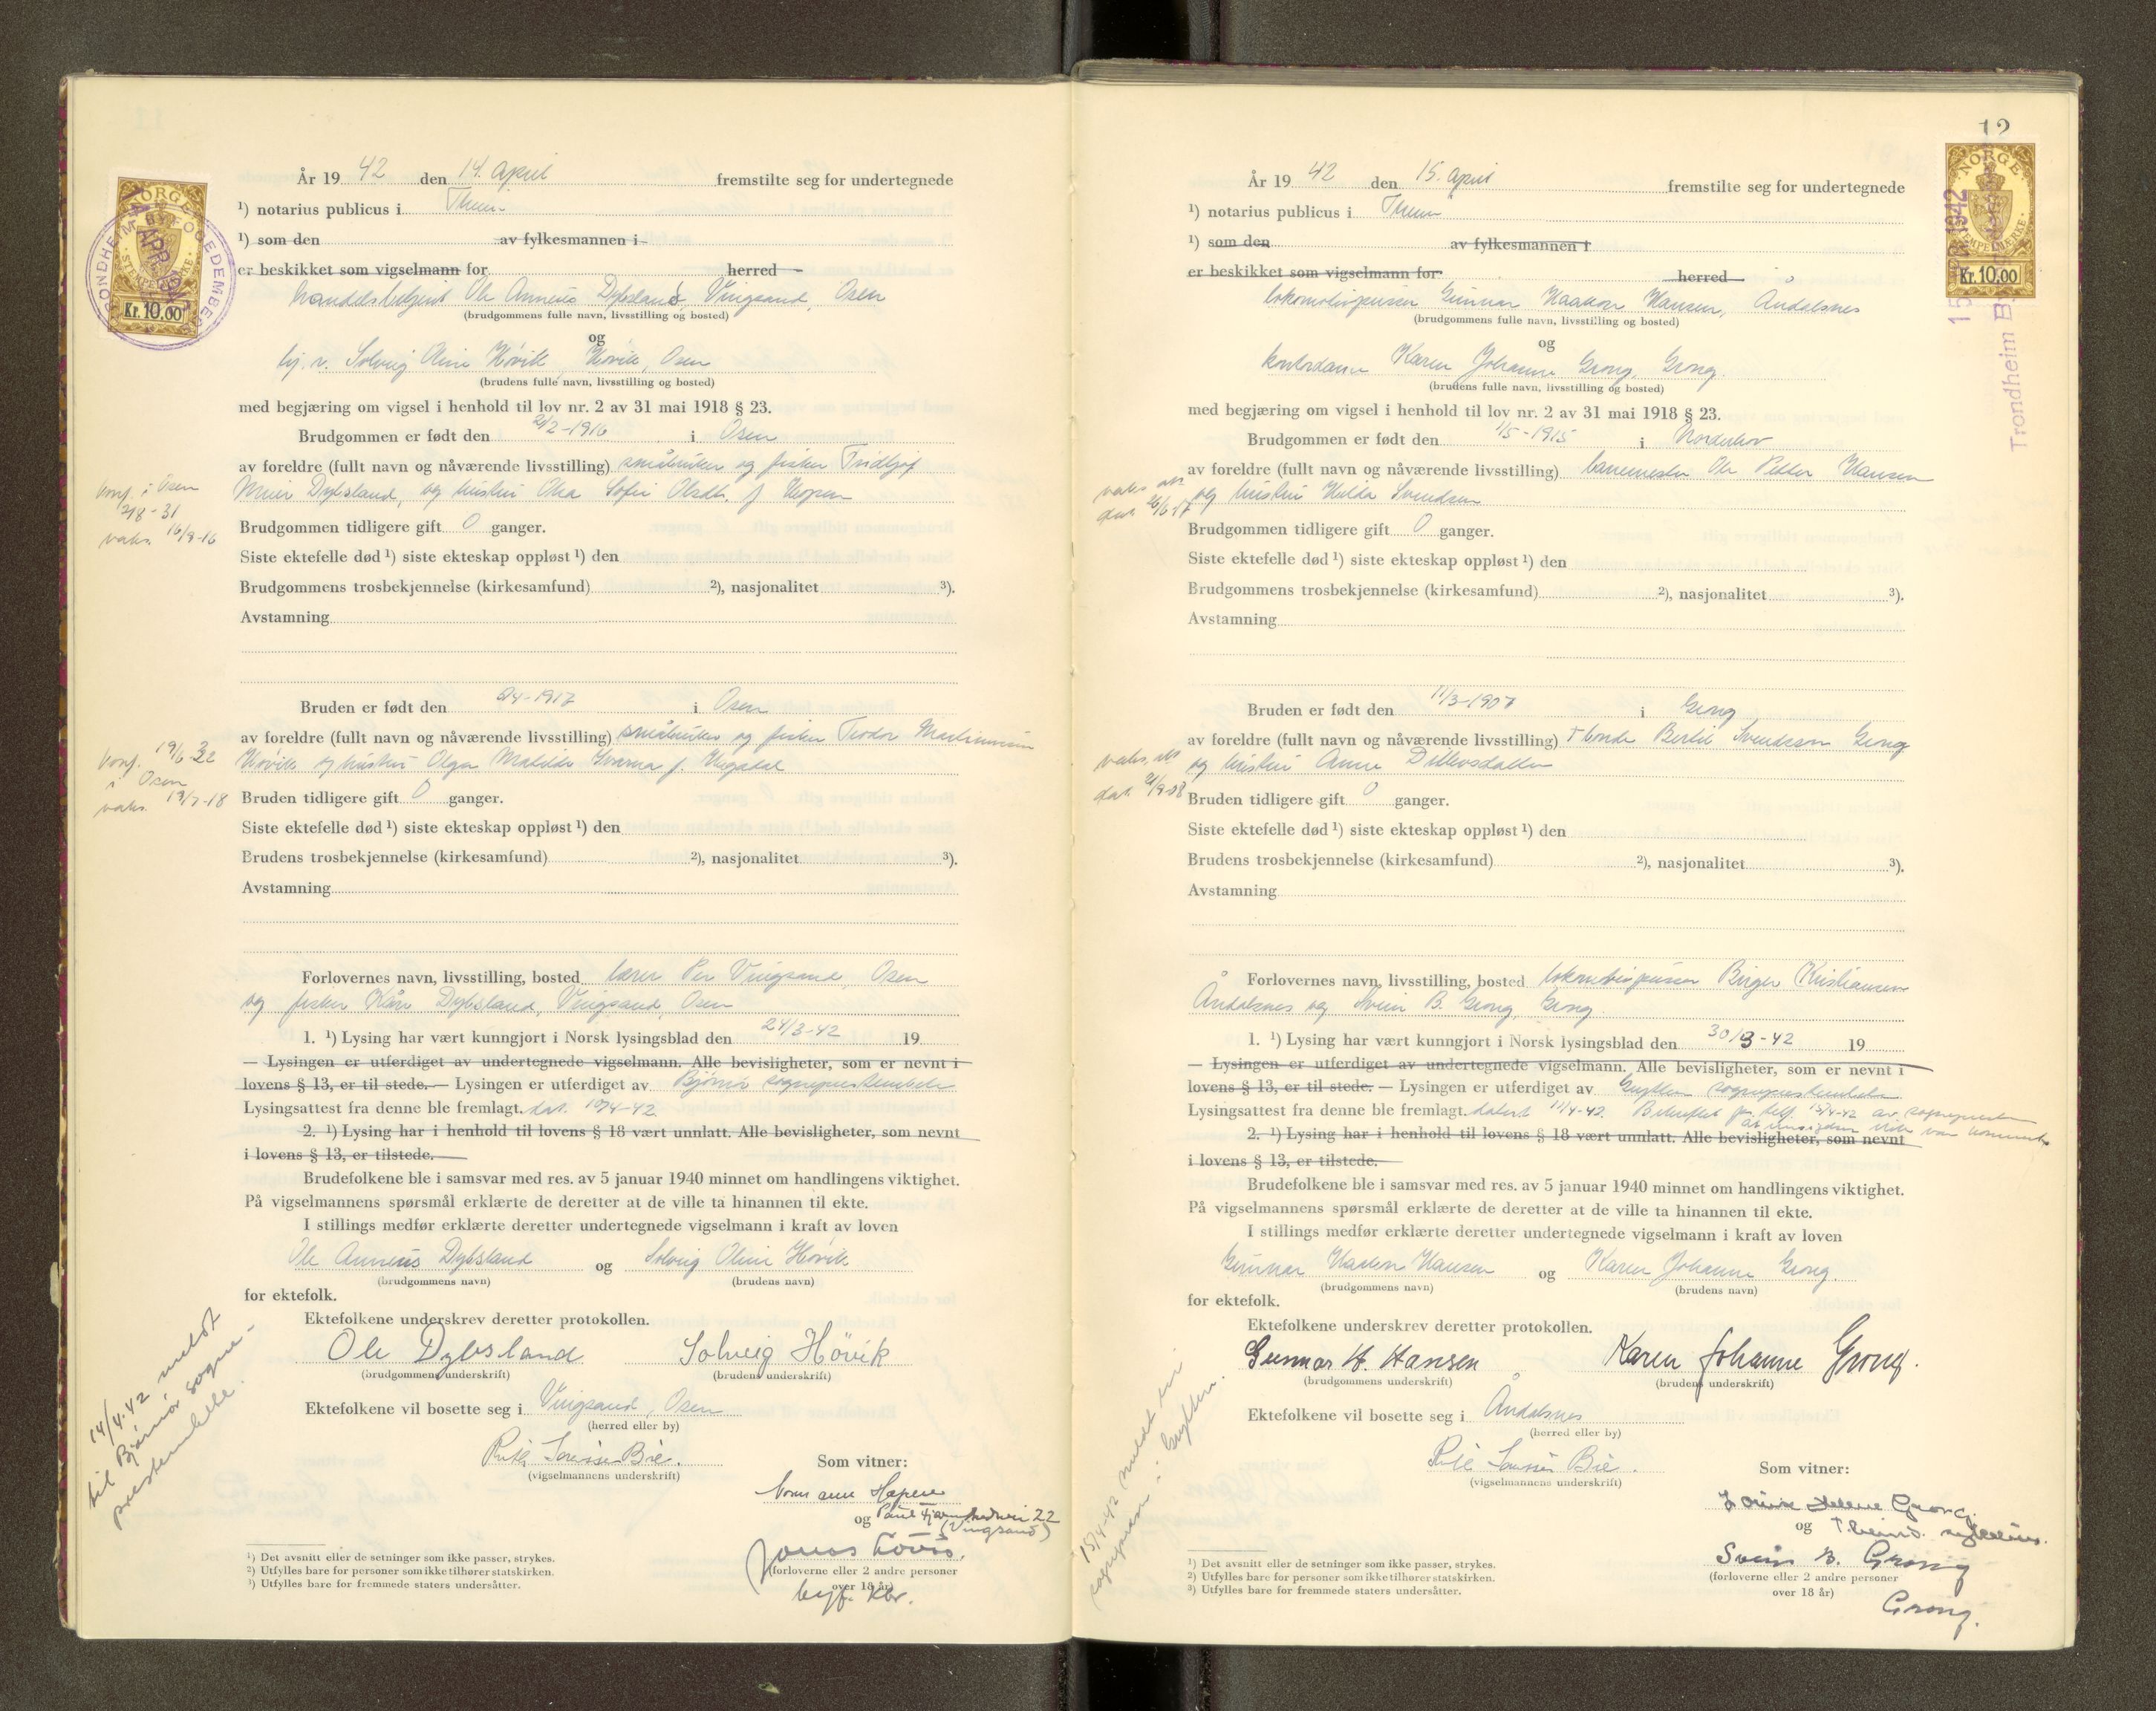 År 19 42 den 14. April fremstilte seg for undertegnede
¹) notarius publicus i Thm
¹) som den av fylkesmannen i
er beskikket som vigselmann for herred
handelsbetjent Ole Anneus Dybsland, Vingsand, Osen
(brudgommens fulle navn, livsstilling og bosted)
og
hj. v. Solveig Oline Høvik, Høvik, Osen
(brudens fulle navn, livsstilling og bosted)
med begjæring om vigsel i henhold til lov nr. 2 av 31 mai 1918 § 23.
Brudgommen er født den 2/2-1916 i Osen
av foreldre (fullt navn og nåværende livsstilling) småbruker og fisker Fridtjof
Meier Dybsland, og hustru Olea Sofie Olsdtr. f. Hopen
konf. i Osen
2/8-31
vaks. 16/9-16
Brudgommen tidligere gift 0 ganger.
Siste ektefelle død ¹) siste ekteskap oppløst ¹) den
Brudgommens trosbekjennelse (kirkesamfund) ²), nasjonalitet ³).
Avstamning
Bruden er født den 2/4-1917 i Osen
av foreldre (fullt navn og nåværende livsstilling) småbruker og fisker Teodor Martinusen
Høvik og hustru Olga Matilde Hvarna f. Hegdal
konf. 19/6-32
i Osen
vaks. 13/7-18
Bruden tidligere gift 0 ganger.
Siste ektefelle død ¹) siste ekteskap oppløst ¹) den
Brudens trosbekjennelse (kirkesamfund) ²), nasjonalitet ³).
Avstamning
Forlovernes navn, livsstilling, bosted lærer Per Vingsand, Osen
og fisker Kåre Dybsland, Vingsand, Osen
1. ¹) Lysing har vært kunngjort i Norsk lysingsblad den 24/3-42 19
— Lysingen er utferdiget av undertegnede vigselmann. Alle bevisligheter, som er nevnt i
lovens § 13, er til stede. — Lysingen er utferdiget av Bjørnør sogneprestembete
Lysingsattest fra denne ble fremlagt. dat. 10/4-42
2. ¹) Lysing har i henhold til lovens § 18 vært unnlatt. Alle bevisligheter, som nevnt
i lovens § 13, er tilstede.
Brudefolkene ble i samsvar med res. av 5 januar 1940 minnet om handlingens viktighet.
På vigselmannens spørsmål erklærte de deretter at de ville ta hinannen til ekte.
I stillings medfør erklærte deretter undertegnede vigselmann i kraft av loven
Ole Anneus Dybsland og Solveig Oline Høvik
(brudgommens navn) (brudens navn)
for ektefolk.
Ektefolkene underskrev deretter protokollen.
Ole Dybsland Solveig Hövik
(brudgommens underskrift) (brudens underskrift)
Ektefolkene vil bosette seg i Vingsand, Osen
(herred eller by)
14/4.42 meldt
til Bjørnør sogne-
prestembete.
Bie.
(vigselmannens underskrift)
Som vitner:
og
(Vingsand)
Jonas
(forloverne eller 2 andre personer
over 18 år)
byf. ktr.
¹) Det avsnitt eller de setninger som ikke passer, strykes.
²) Utfylles bare for personer som ikke tilhører statskirken.
³) Utfylles bare for fremmede staters undersåtter.
NORGE
STEMPELMERKE
Kr. 10.00
TRONDHEIM BYFOGEDEMBED
12
År 19 42 den 15. april fremstilte seg for undertegnede
¹) notarius publicus i Thm
¹) som den av fylkesmannen i
er beskikket som vigselmann for herred
lokomotivpusser Gunnar Haakon Hansen, Åndalsnes
(brudgommens fulle navn, livsstilling og bosted)
og
kontordame Karen Johanne Grong, Grong.
(brudens fulle navn, livsstilling og bosted)
med begjæring om vigsel i henhold til lov nr. 2 av 31 mai 1918 § 23.
Brudgommen er født den 1/5-1915 i Norderhov
av foreldre (fullt navn og nåværende livsstilling) banemester Ole Petter Hansen
og hustru Hilda Svendsen
vaks. att.
dat. 26/6-17
Brudgommen tidligere gift 0 ganger.
Siste ektefelle død ¹) siste ekteskap oppløst ¹) den
Brudgommens trosbekjennelse (kirkesamfund) ²), nasjonalitet ³).
Avstamning
Bruden er født den 11/3-1907 i Grong
av foreldre (fullt navn og nåværende livsstilling) + bonde Bertil Svendsen Grong
og hustru Anna Ditlevsdatter
vaks. att.
dat. 21/9-08
Bruden tidligere gift 0 ganger.
Siste ektefelle død ¹) siste ekteskap oppløst ¹) den
Brudens trosbekjennelse (kirkesamfund) ²), nasjonalitet ³).
Avstamning
Forlovernes navn, livsstilling, bosted lokomotivpusser Birger Kristiansen
Åndalsnes og Svein B. Grong, Grong.
1. ¹) Lysing har vært kunngjort i Norsk lysingsblad den 30/3-42 19
— Lysingen er utferdiget av undertegnede vigselmann. Alle bevisligheter, som er nevnt i
lovens § 13, er til stede. — Lysingen er utferdiget av Grytten sogneprestembete
Lysingsattest fra denne ble fremlagt. datert 11/4-42. Bekreftet pr. telf. 15/4-42 av sognepresten
at innsigelser ikke var kommet
2. ¹) Lysing har i henhold til lovens § 18 vært unnlatt. Alle bevisligheter, som nevnt
i lovens § 13, er tilstede.
Brudefolkene ble i samsvar med res. av 5 januar 1940 minnet om handlingens viktighet.
På vigselmannens spørsmål erklærte de deretter at de ville ta hinannen til ekte.
I stillings medfør erklærte deretter undertegnede vigselmann i kraft av loven
Gunnar Haakon Hansen og Karen Johanne Grong.
(brudgommens navn) (brudens navn)
for ektefolk.
Ektefolkene underskrev deretter protokollen.
Gunnar H. Hansen Karen Johanne Grong.
(brudgommens underskrift) (brudens underskrift)
Ektefolkene vil bosette seg i Åndalsnes
(herred eller by)
15/4-42 meldt til
sognepresten i Grytten.
Bie.
(vigselmannens underskrift)
Som vitner:
Louise Helene Grong.
og
Svein B. Grong
(forloverne eller 2 andre personer
over 18 år)
Grong.
¹) Det avsnitt eller de setninger som ikke passer, strykes.
²) Utfylles bare for personer som ikke tilhører statskirken.
³) Utfylles bare for fremmede staters undersåtter.
NORGE
STEMPELMERKE
Kr. 10.00
15 APR 1942
Trondheim